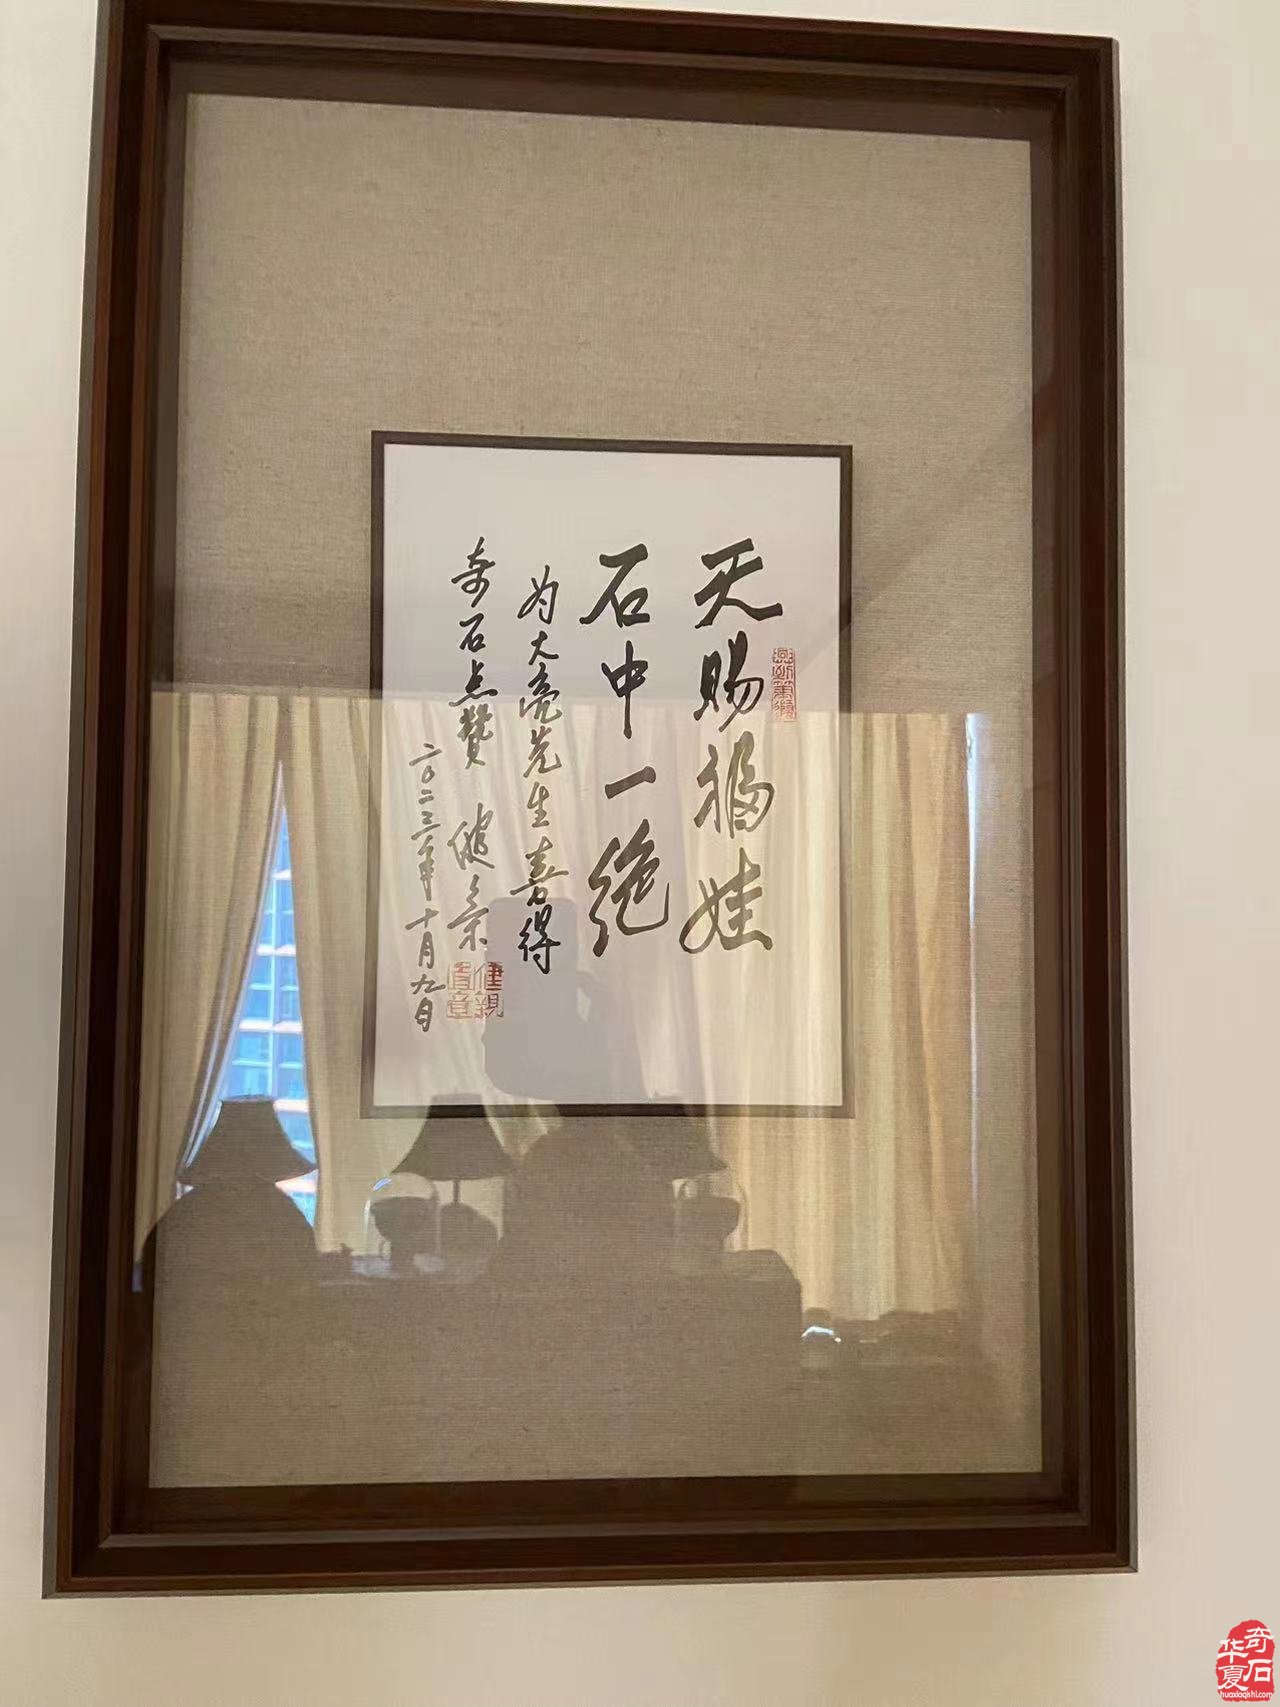 天赐福娃
石中一绝
为大亮先生喜得
奇石点赞
二〇二三年十月九日
华夏奇石
huaxiaqishi.com